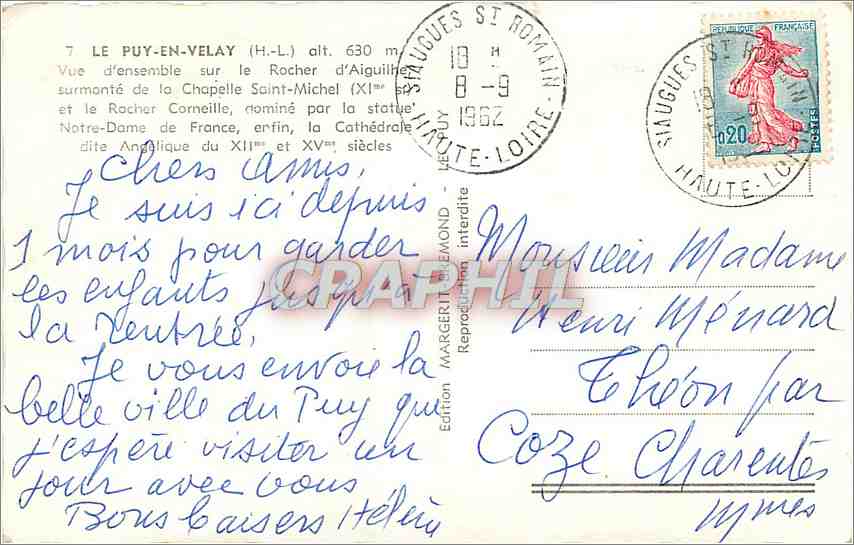 7 LE PUY-EN-VELAY (H.-L.) alt. 630 m.
Vue d'ensemble sur le Rocher d'Aiguilhe
surmonté de la Chapelle Saint-Michel (XIme s)
et le Rocher Corneille, dominé par la statue
Notre-Dame de France, enfin, la Cathédrale
dite Angélique du XIIme et XVme siècles
Chers amis,
Je suis ici depuis
1 mois pour garder
les enfants jusqu'à
la rentrée,
Je vous envoie la
belle ville du Puy que
j'espère visiter un
jour avec vous
Bons baisers Hélène
Edition MARGERIT-BREMOND - LE PUY
Reproduction interdite
SIAUGUES ST ROMAIN
18 H
8 - 9
1962
HAUTE-LOIRE
REPUBLIQUE FRANÇAISE
0,20
POSTES
SIAUGUES ST ROMAIN
18
HAUTE-LOIRE
Monsieur Madame
Henri Ménard
Théon par
Coze Charentes
CPAPHIL